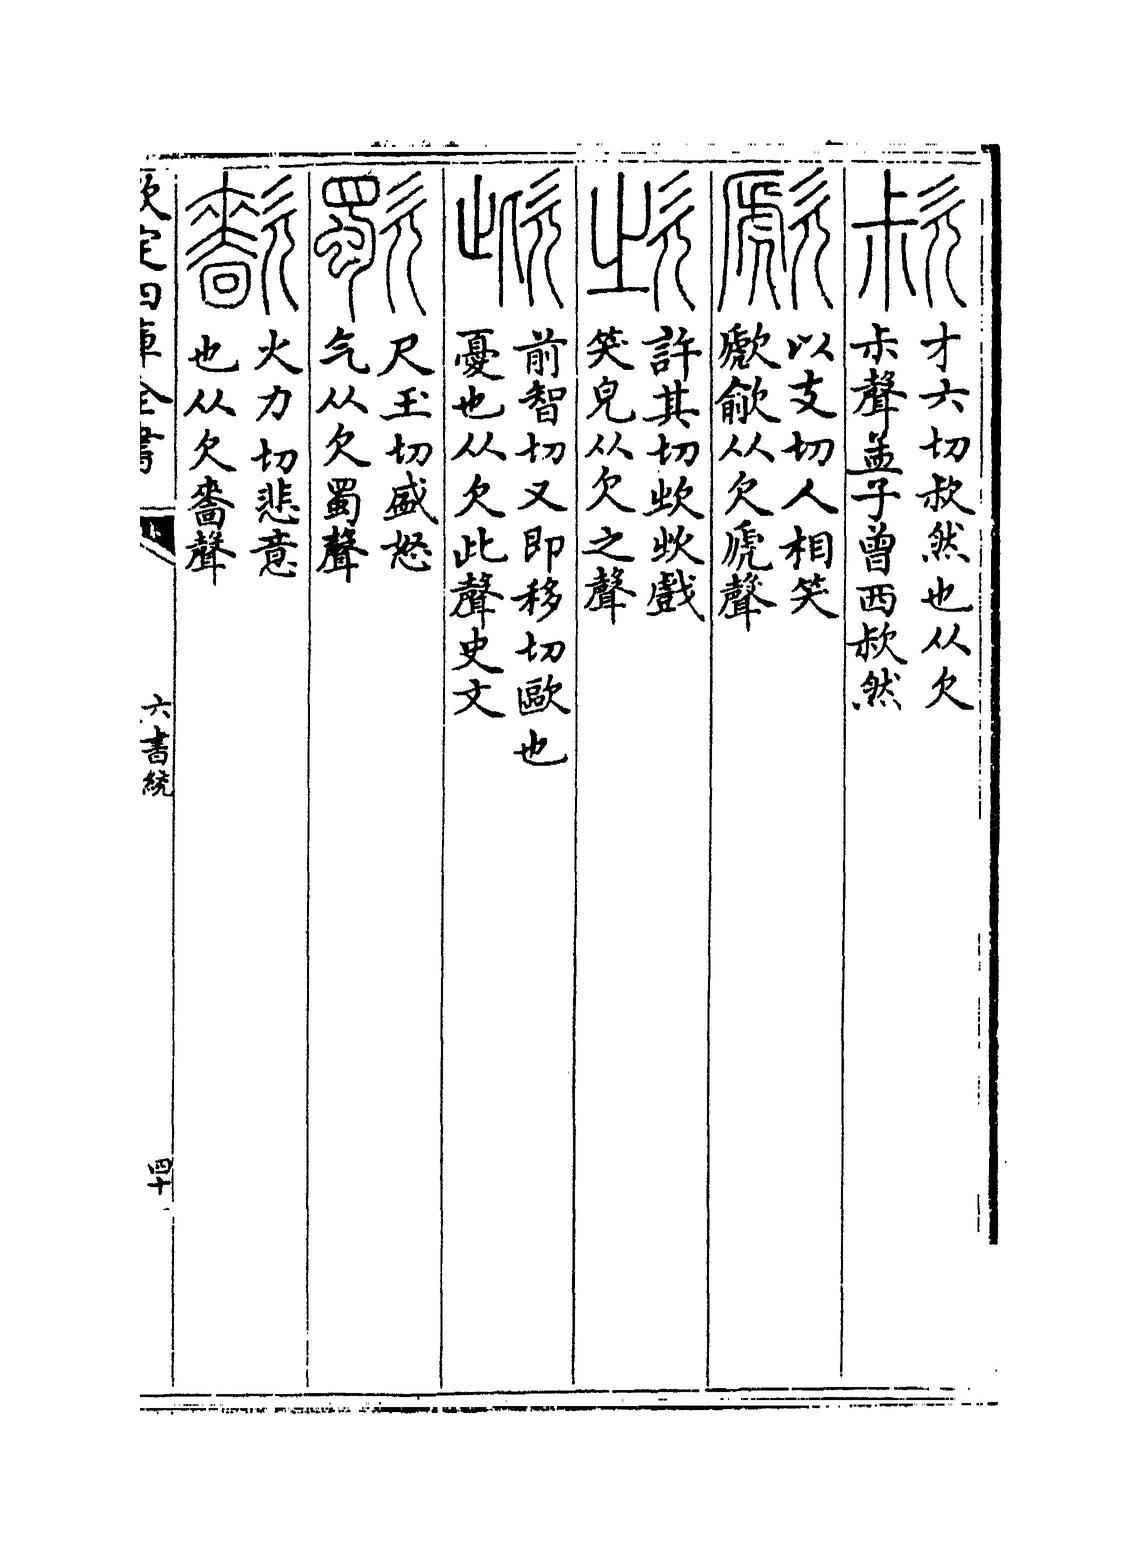 𣢰
才六切㰗然也从欠
尗聲孟子曾西㰗然
歋
以支切人相笑
歋歈从欠虒聲
㰞
許其切㰞㰞戲
笑皃从欠之聲
㱀
前智切又即移切歐也
憂也从欠此聲史文
歜
尺玉切盛怒
气从欠蜀聲
歖
火力切悲意
也从欠嗇聲
欽定四庫全書
六書統
四十